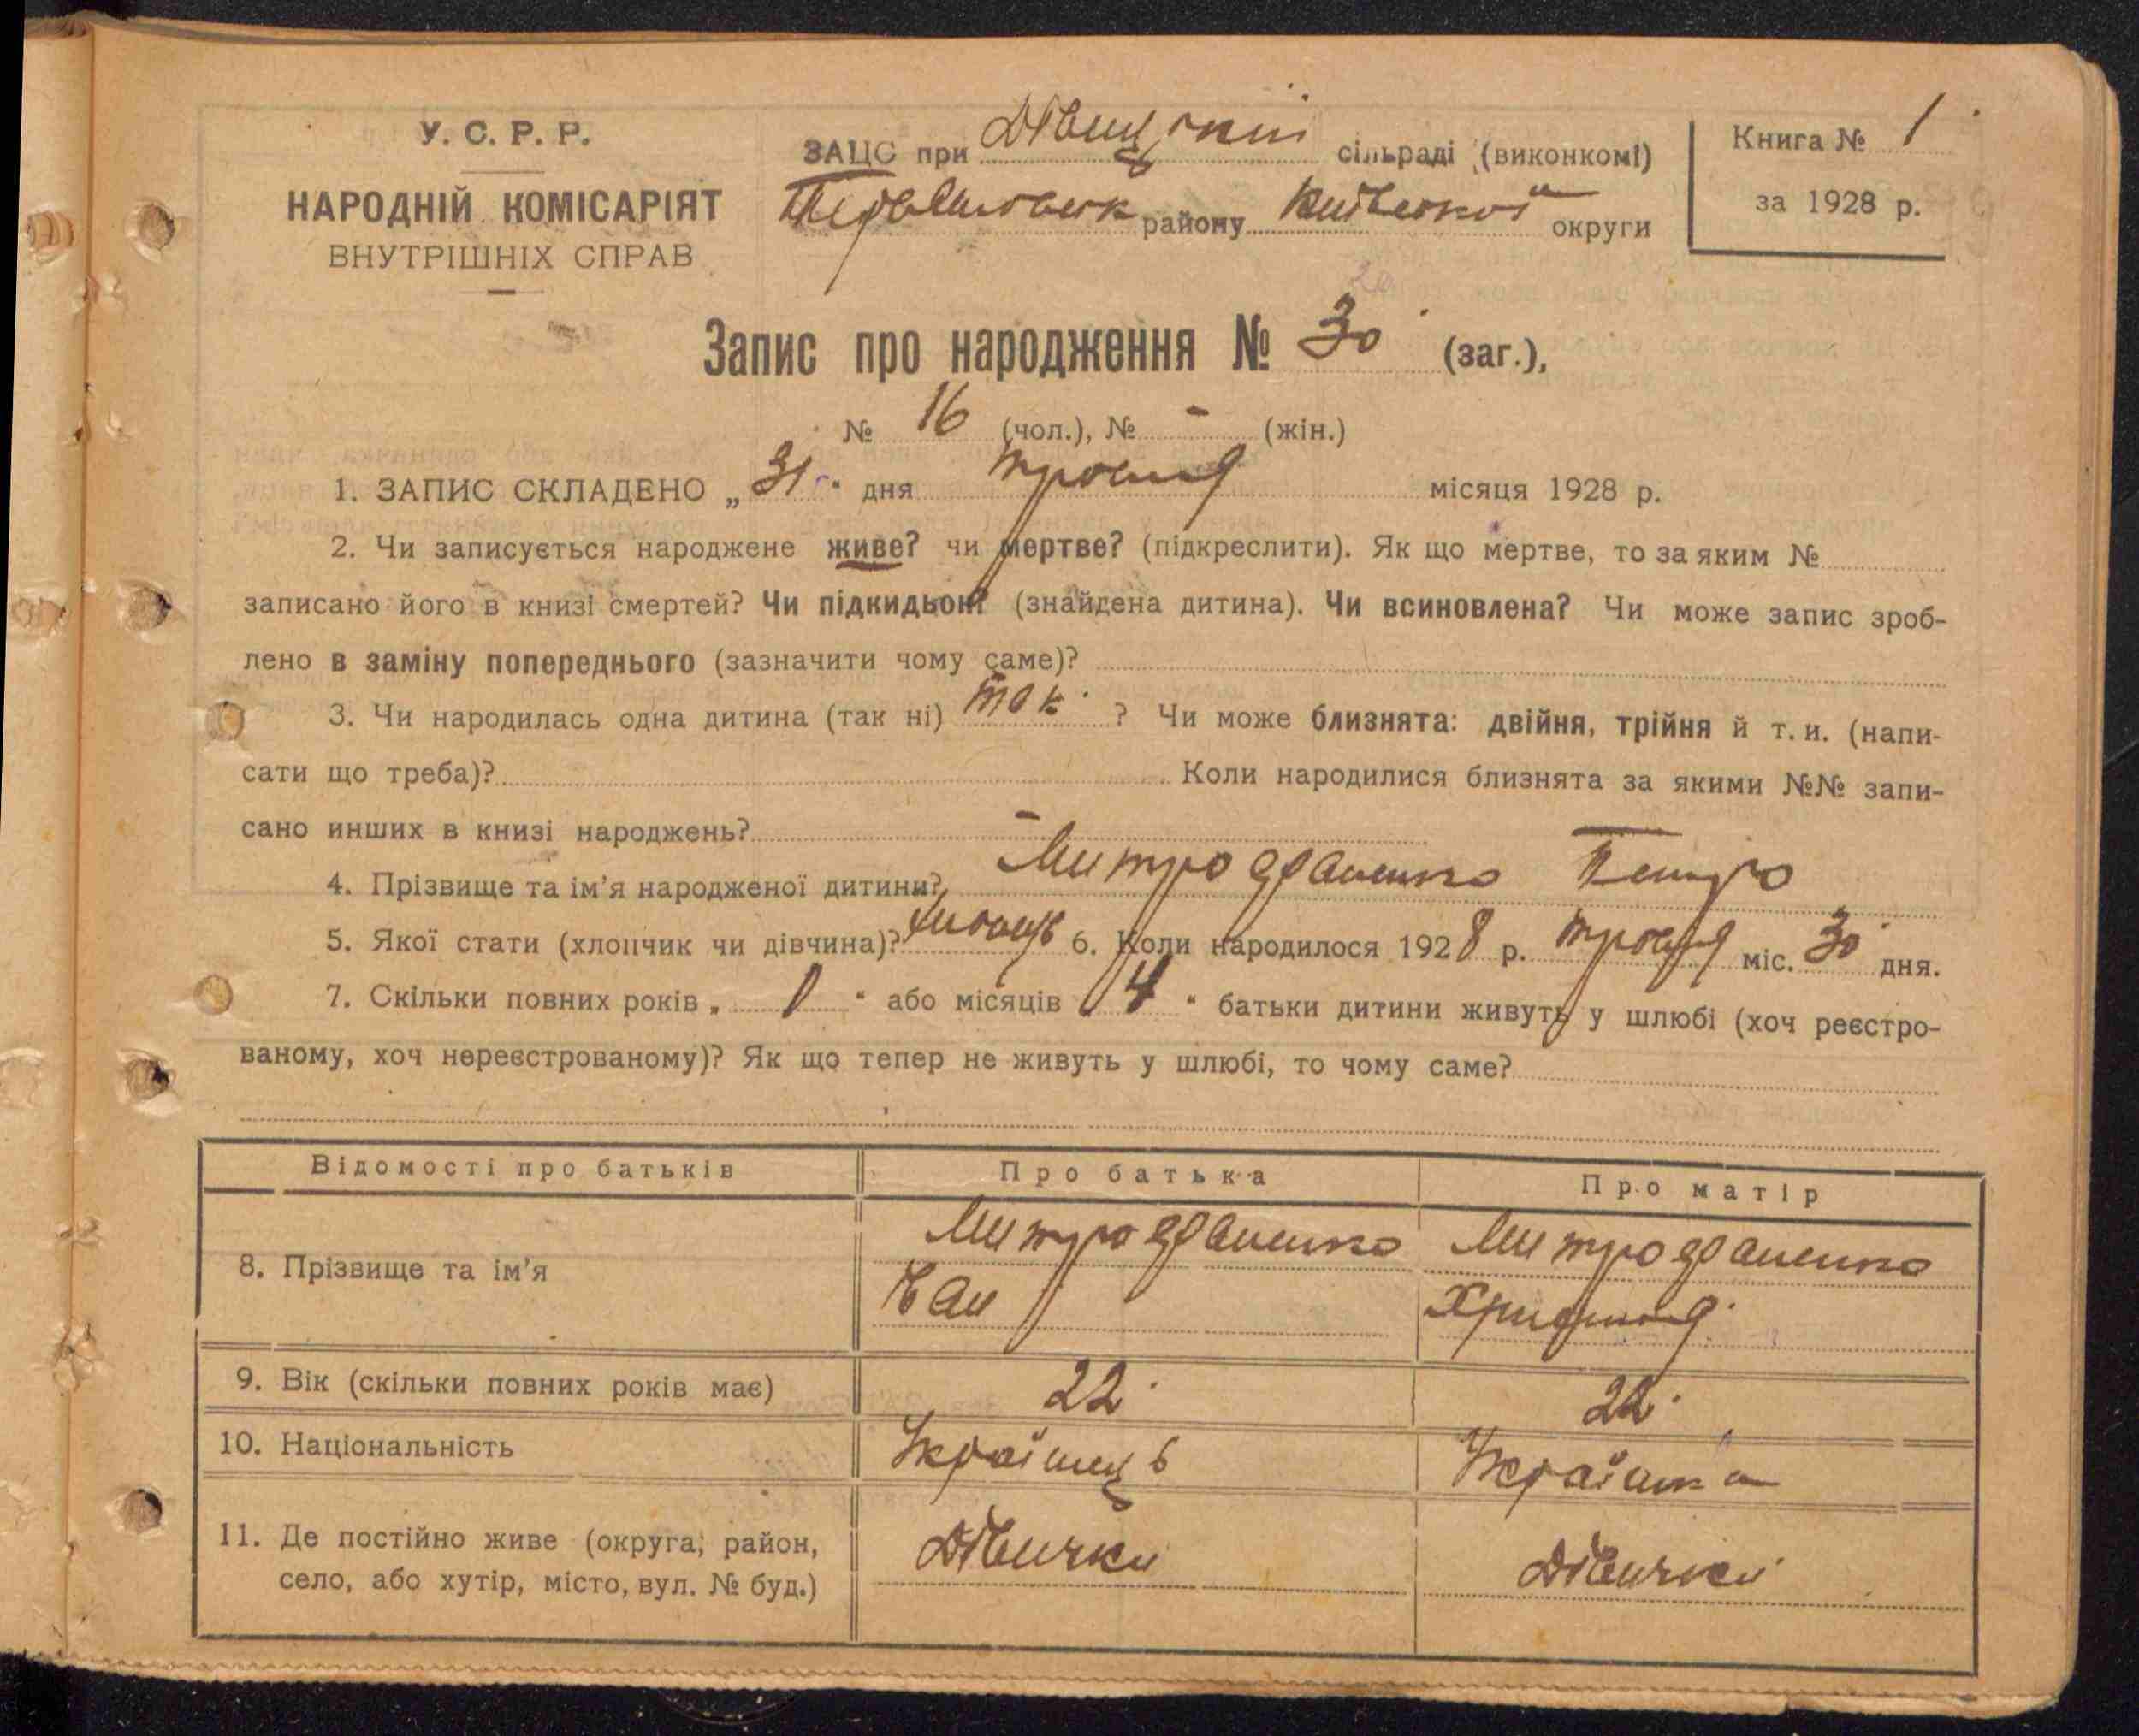 У. С. Р. Р.
НАРОДНІЙ КОМІСАРІЯТ
ВНУТРІШНІХ СПРАВ
ЗАЦС при Дівицькій сільраді (виконкомі)
району Київської округи
Книга № 1
за 1928 р.
Запис про народження № 30 (заг.),
№ 16 (чол.), № - (жін.)
1. ЗАПИС СКЛАДЕНО „ 31 " дня травня місяця 1928 р.
2. Чи записується народжене живе? чи мертве? (підкреслити). Як що мертве, то за яким №
записано його в книзі смертей? Чи підкидьок? (знайдена дитина). Чи всиновлена? Чи може запис зроб-
лено в заміну попереднього (зазначити чому саме)?
3. Чи народилась одна дитина (так ні) так ? Чи може близнята: двійня, трійня й т. и. (напи-
сати що треба)? Коли народилися близнята за якими №№ запи-
сано инших в книзі народжень? -
4. Прізвище та ім'я народженої дитини? Митрофаненко Петро
5. Якої стати (хлопчик чи дівчина)? 6. Коли народилося 1928 р. травня міс. 30 дня.
7. Скільки повних років „ 1 " або місяців 4 " батьки дитини живуть у шлюбі (хоч реєстро-
ваному, хоч нереєстрованому)? Як що тепер не живуть у шлюбі, то чому саме?
Відомості про батьків
Про батька
Про матір
8. Прізвище та ім'я
Митрофаненко
Митрофаненко
9. Вік (скільки повних років має)
22
22
10. Національність
Українець
Українка
11. Де постійно живе (округа, район,
село, або хутір, місто, вул. № буд.)
Дівички
Дівички